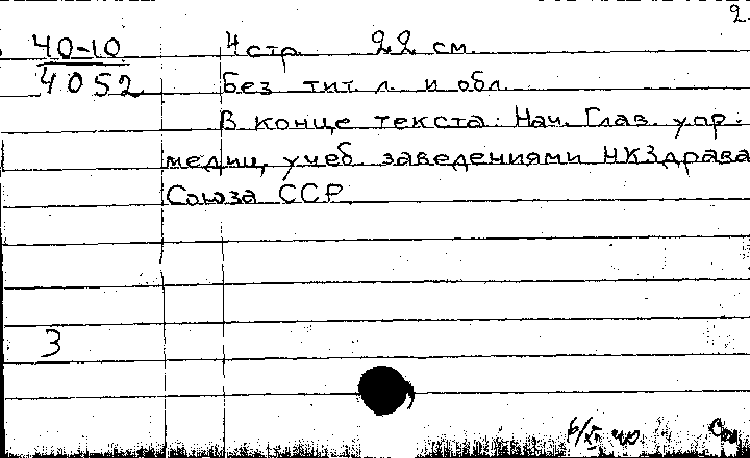 2
40-10 4 стр. 22 см.
4052 Без тит. л. и обл.
В конце текста: Нач. Глав. упр.
медиц. учеб. заведениями НКЗдрава
Союза ССР
3
6/XII 40